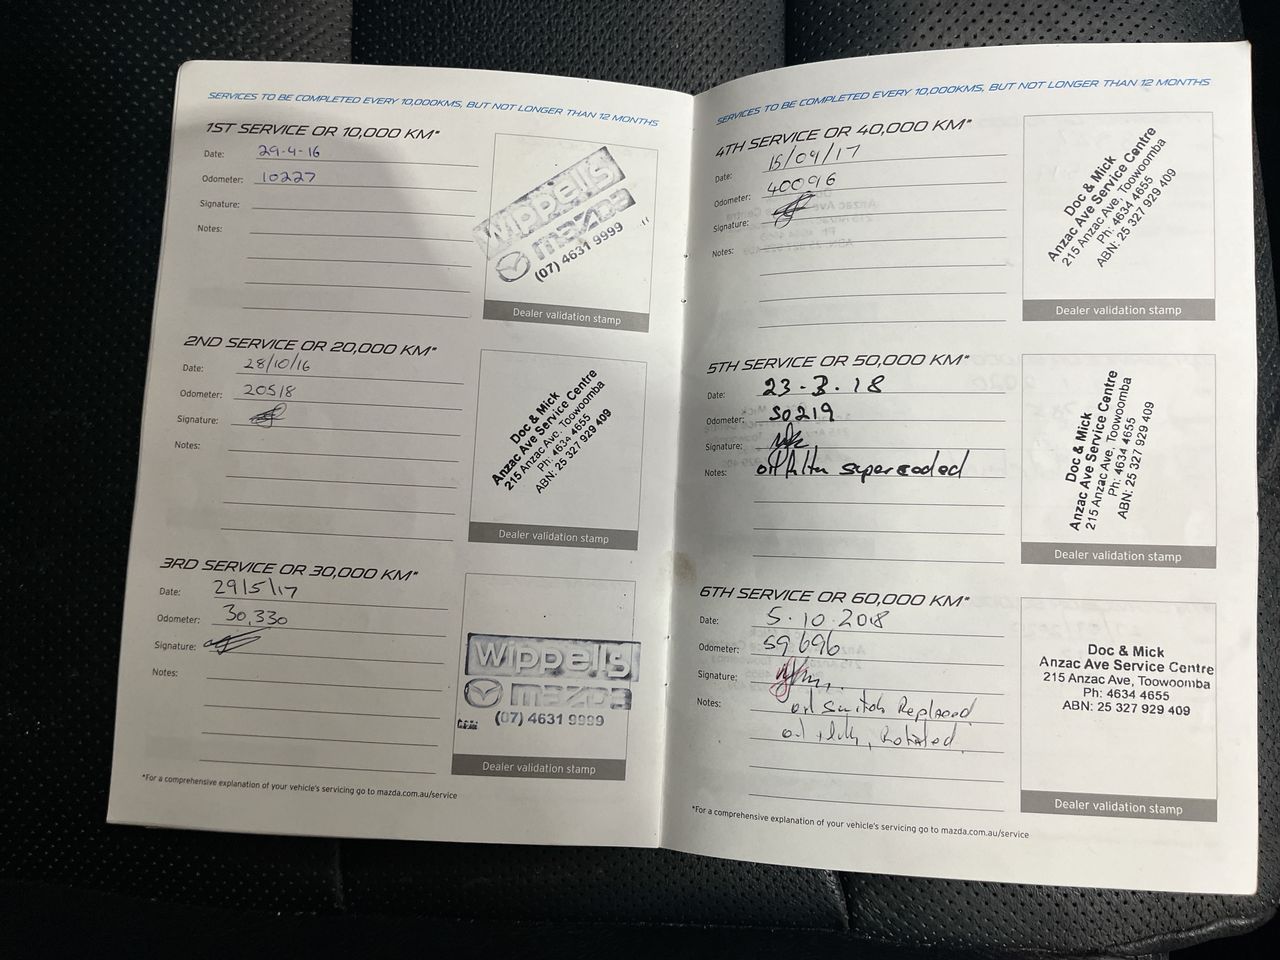 SERVICES TO BE COMPLETED EVERY 10,000KMS, BUT NOT LONGER THAN 12 MONTHS
1ST SERVICE OR 10,000 KM*
Date: 29-4-16
Odometer: 10227
Signature:
Notes:
Wippells
mazda
(07) 4631 9999
Dealer validation stamp
2ND SERVICE OR 20,000 KM*
Date: 28/10/16
Odometer: 20518
Signature:
Notes:
Doc & Mick
Anzac Ave Service Centre
215 Anzac Ave, Toowoomba
Ph: 4634 4655
ABN: 25 327 929 409
Dealer validation stamp
3RD SERVICE OR 30,000 KM*
Date: 29/5/17
Odometer: 30,330
Signature:
Notes:
Wippells
mazda
(07) 4631 9999
Dealer validation stamp
*For a comprehensive explanation of your vehicle's servicing go to mazda.com.au/service
SERVICES TO BE COMPLETED EVERY 10,000KMS, BUT NOT LONGER THAN 12 MONTHS
4TH SERVICE OR 40,000 KM*
Date: 15/09/17
Odometer: 40096
Signature:
Notes:
Doc & Mick
Anzac Ave Service Centre
215 Anzac Ave, Toowoomba
Ph: 4634 4655
ABN: 25 327 929 409
Dealer validation stamp
5TH SERVICE OR 50,000 KM*
Date: 23-3-18
Odometer: 50219
Signature:
Notes: oil filter superceeded
Doc & Mick
Anzac Ave Service Centre
215 Anzac Ave, Toowoomba
Ph: 4634 4655
ABN: 25 327 929 409
Dealer validation stamp
6TH SERVICE OR 60,000 KM*
Date: 5.10.2018
Odometer: 59696
Signature:
Notes: oil switch Replaced
oil filter, Rotated
Doc & Mick
Anzac Ave Service Centre
215 Anzac Ave, Toowoomba
Ph: 4634 4655
ABN: 25 327 929 409
Dealer validation stamp
*For a comprehensive explanation of your vehicle's servicing go to mazda.com.au/service